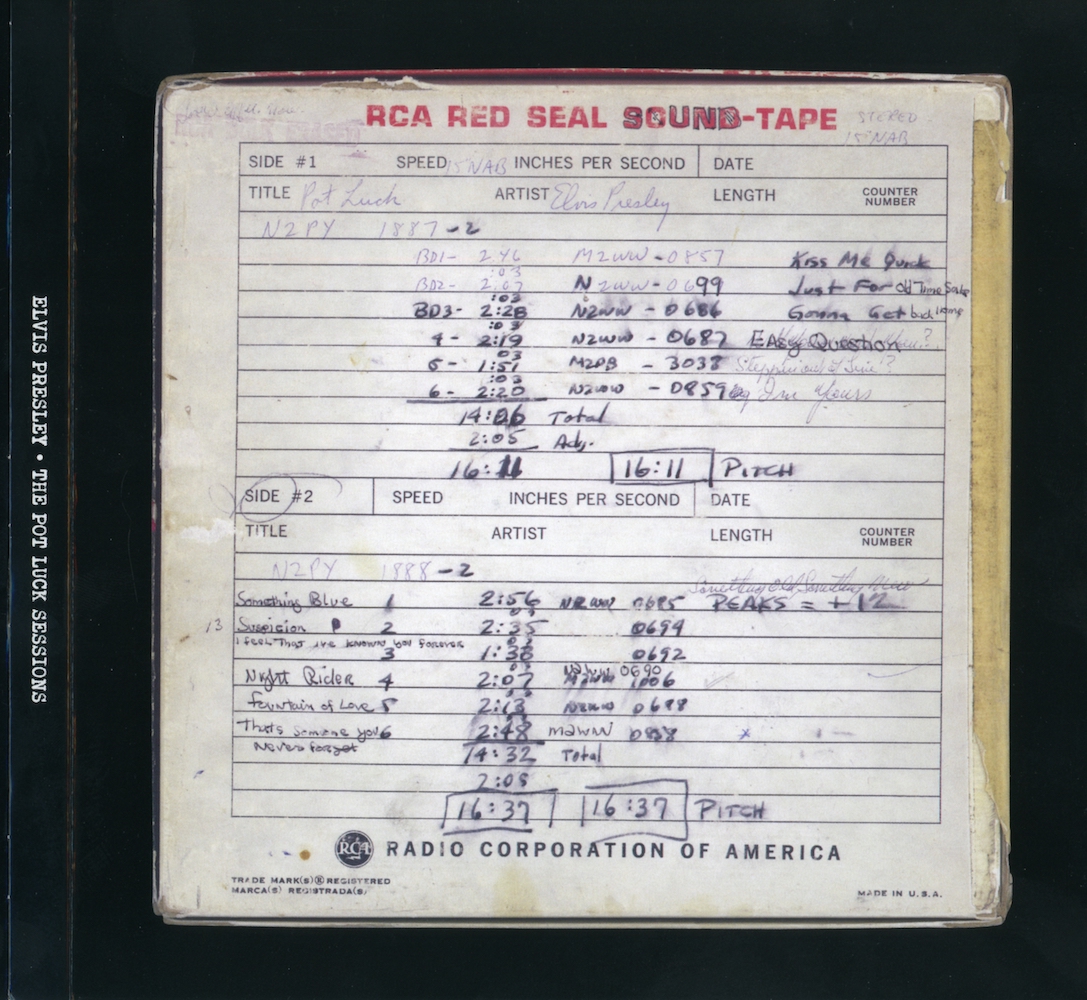 ELVIS PRESLEY • THE POT LUCK SESSIONS
RCA RED SEAL SOUND-TAPE
STEREO
15 NAB
SIDE #1 SPEED 15 NAB INCHES PER SECOND DATE
TITLE Pot Luck ARTIST Elvis Presley LENGTH COUNTER NUMBER
N2PY 1887-2
BD1- 2:46 M2WW-0857 Kiss Me Quick
:03
BD2- 2:07 N2WW-0699 Just For old Time Sake
:03
BD3- 2:28 N2WW-0686 Gonna Get back home
:03
4- 2:19 N2WW-0687 EASy Question
03
5- 1:51 M2PB-3038 Steppin out of Line?
:03
6- 2:20 N2WW-0859 I'm Yours
14:06 Total
2:05 Adj.
16:11 16:11 PITCH
SIDE #2 SPEED INCHES PER SECOND DATE
TITLE ARTIST LENGTH COUNTER NUMBER
N2PY 1888-2
Something Old Something New
Something Blue 1 2:56 N2WW 0685 PEAKS = +12
03
13 Suspicion 2 2:35 0694
I feel That ive known you forever
03
3 1:38 0692
03 N2WW 0690
Night Rider 4 2:07 1006
03
fountain of Love 5 2:13 N2WW 0688
Thats someone you 6 2:48 M2WW 0858
Never forget
14:32 Total
2:05
16:37 16:37 PITCH
RCA RADIO CORPORATION OF AMERICA
TRADE MARK(S)® REGISTERED
MARCA(S) REGISTRADA(S)
MADE IN U.S.A.